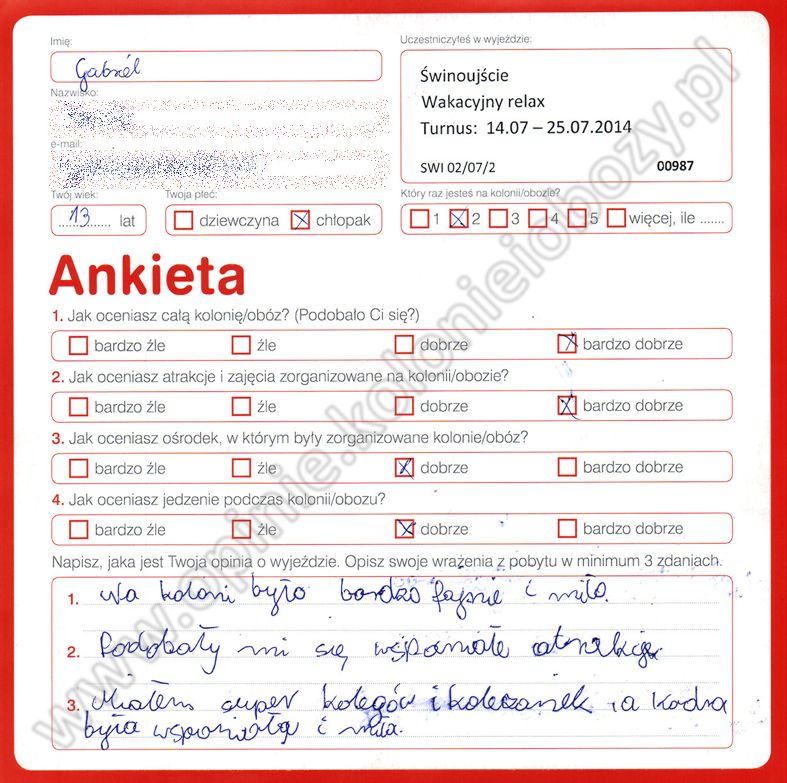 Imię:
Gabriel
Uczestniczyłeś w wyjeździe:
Świnoujście
Wakacyjny relax
Turnus: 14.07 – 25.07.2014
SWI 02/07/2 00987
Nazwisko:
e-mail:
Twój wiek:
13 lat
Twoja płeć:
dziewczyna chłopak
Który raz jesteś na kolonii/obozie?
1 2 3 4 5 więcej, ile .......
Ankieta
1. Jak oceniasz całą kolonię/obóz? (Podobało Ci się?)
bardzo źle źle dobrze bardzo dobrze
2. Jak oceniasz atrakcje i zajęcia zorganizowane na kolonii/obozie?
bardzo źle źle dobrze bardzo dobrze
3. Jak oceniasz ośrodek, w którym były zorganizowane kolonie/obóz?
bardzo źle źle dobrze bardzo dobrze
4. Jak oceniasz jedzenie podczas kolonii/obozu?
bardzo źle źle dobrze bardzo dobrze
Napisz, jaka jest Twoja opinia o wyjeździe. Opisz swoje wrażenia z pobytu w minimum 3 zdaniach.
1. Na koloni było bardzo fajnie i miło.
2. Podobały mi się wspaniałe atrakcje
3. Miałem super kolegów i koleżanek, a kadra
była wspaniała i miła.
www.opinie.kolonieiobozy.pl